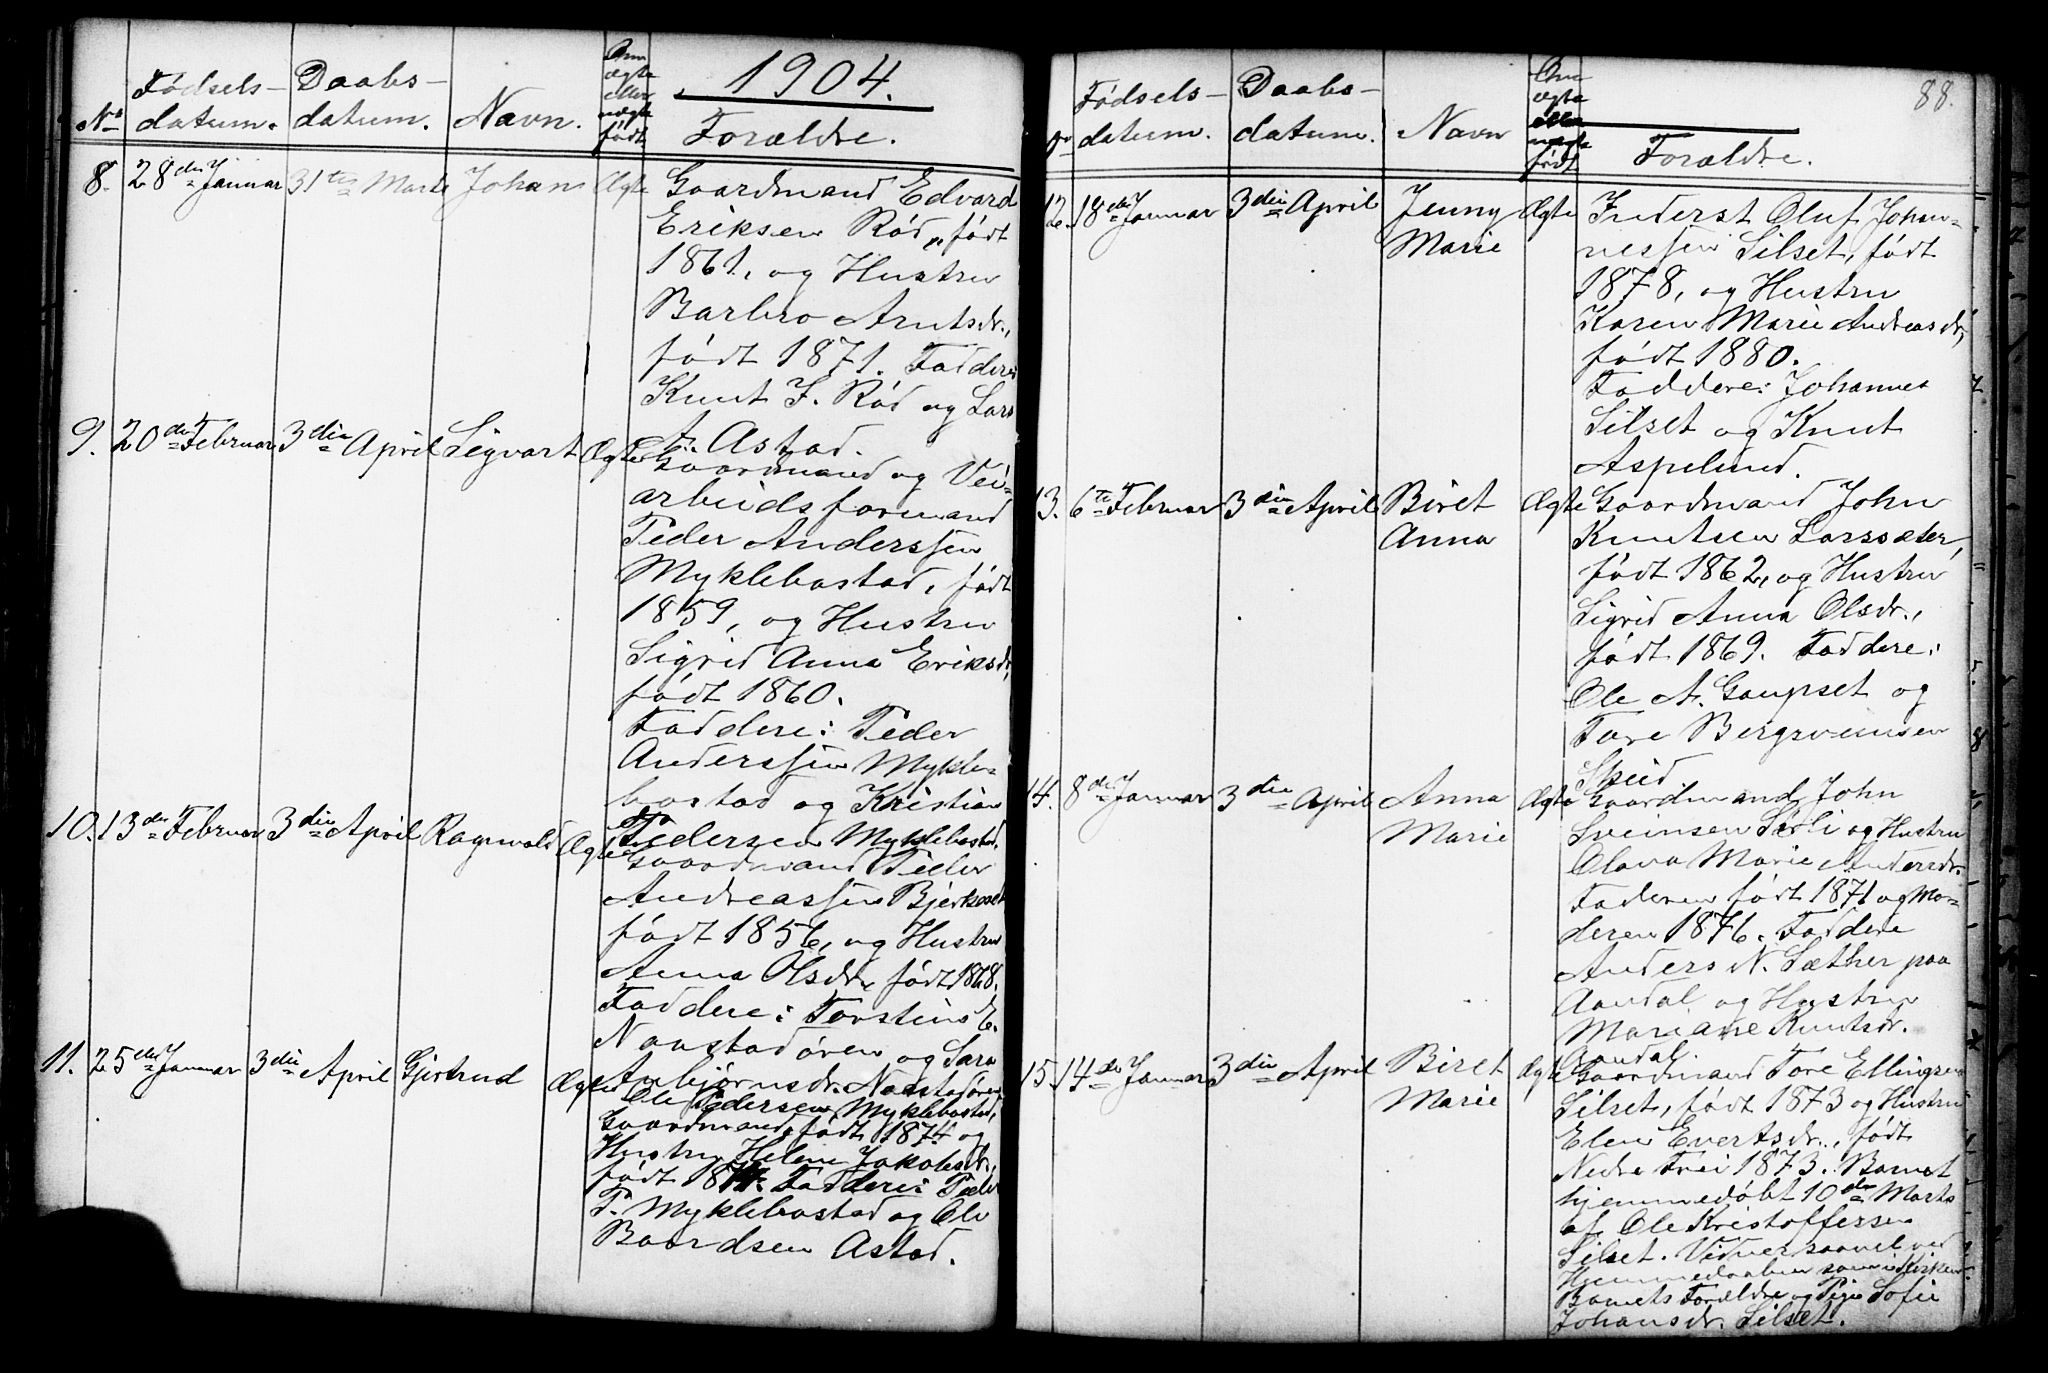 1904.
No Fødsels- datum. Daabs- datum. Navn. Om ægte eller uægte født Forældre.
8. 28de Januar 31te Marts Johan Ægte Gaardmand Edvard
Eriksen Rød, født
1861, og Hustru
Barbro Arntsdr.,
født 1871. Faddere:
Knut F. Rød og Lars
Astad.
9. 20de Februar 3die April Sigvart Ægte Gaardmand og Vei-
arbeidsformand
Peder Anderssen
Myklebostad, født
1859, og Hustru
Sigrid Anna Eriksdr,
født 1860.
Faddere: Peder
Anderssen Mykle-
bostad og Kristian
Pedersen Myklebostad.
10. 13de Februar 3die April Ragnvald Ægte Gaardmand Peder
Andreassen Bjerkeset
født 1856, og Hustru
Anna Olsdr, født 1868.
Faddere: Torstein E.
Naustadøren og Sara
Anbjørnsdr. Naustadøren
11. 25de Januar 3die April Gjertrud Ægte Ole Pedersen Myklebostad,
Gaardmand, født 1874 og
Hustru Helene Jakobsdr.,
født Faddere: Peder
P. Myklebostad og Ole
Baardsen Astad.
88.
Nr Fødsels- datum. Daabs- datum. Navn Om ægte eller uægte født Forældre.
12. 18de Januar 3die April Jenny Ægte Inderst Oluf Johan-
Marie nessen Silset, født
1878, og Hustru
Karen Marie Andreasdr,
født 1880.
Faddere: Johannes
Silset og Knut
Aspelund.
13. 6te Februar 3die April Biret Ægte Gaardmand John
Anna Knutsen Larssæter,
født 1862, og Hustru
Sigrid Anna Olsdr.,
født 1869. Faddere:
Ole A. Gaupset og
Tore Bergsveinsen
Skeid.
14. 8de Januar 3die April Anna Ægte Gaardmand John
Marie Sveinsen Sørli og Hustru
Olava Marie Andersdr.
Faderen født 1871 og Mo-
deren 1876. Faddere
Anders N. Sæther paa
Aandal og Hustru
Mariane Knutsdr.
Aandal.
15. 14de Januar 3die April Biret Ægte Gaardmand Tore Ellingsen
Marie Silset, født 1873 og Hustru
Elen Evertsdr., født
Nedre Frei 1873. Barnet
hjemmedøbt 10de Marts
af Ole Kristoffersen
Silset. Vidner saavel ved
Hjemmedaaben som i Kirken
Barnets Forældre og Pige Sofie
Johansdr. Silset.